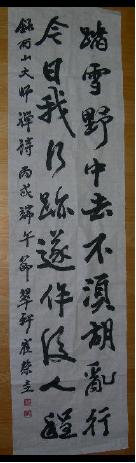 踏雪野中去不須胡亂行
今日我行跡遂作後人程
錄西山大師禪詩 丙戌端午節 翠軒崔